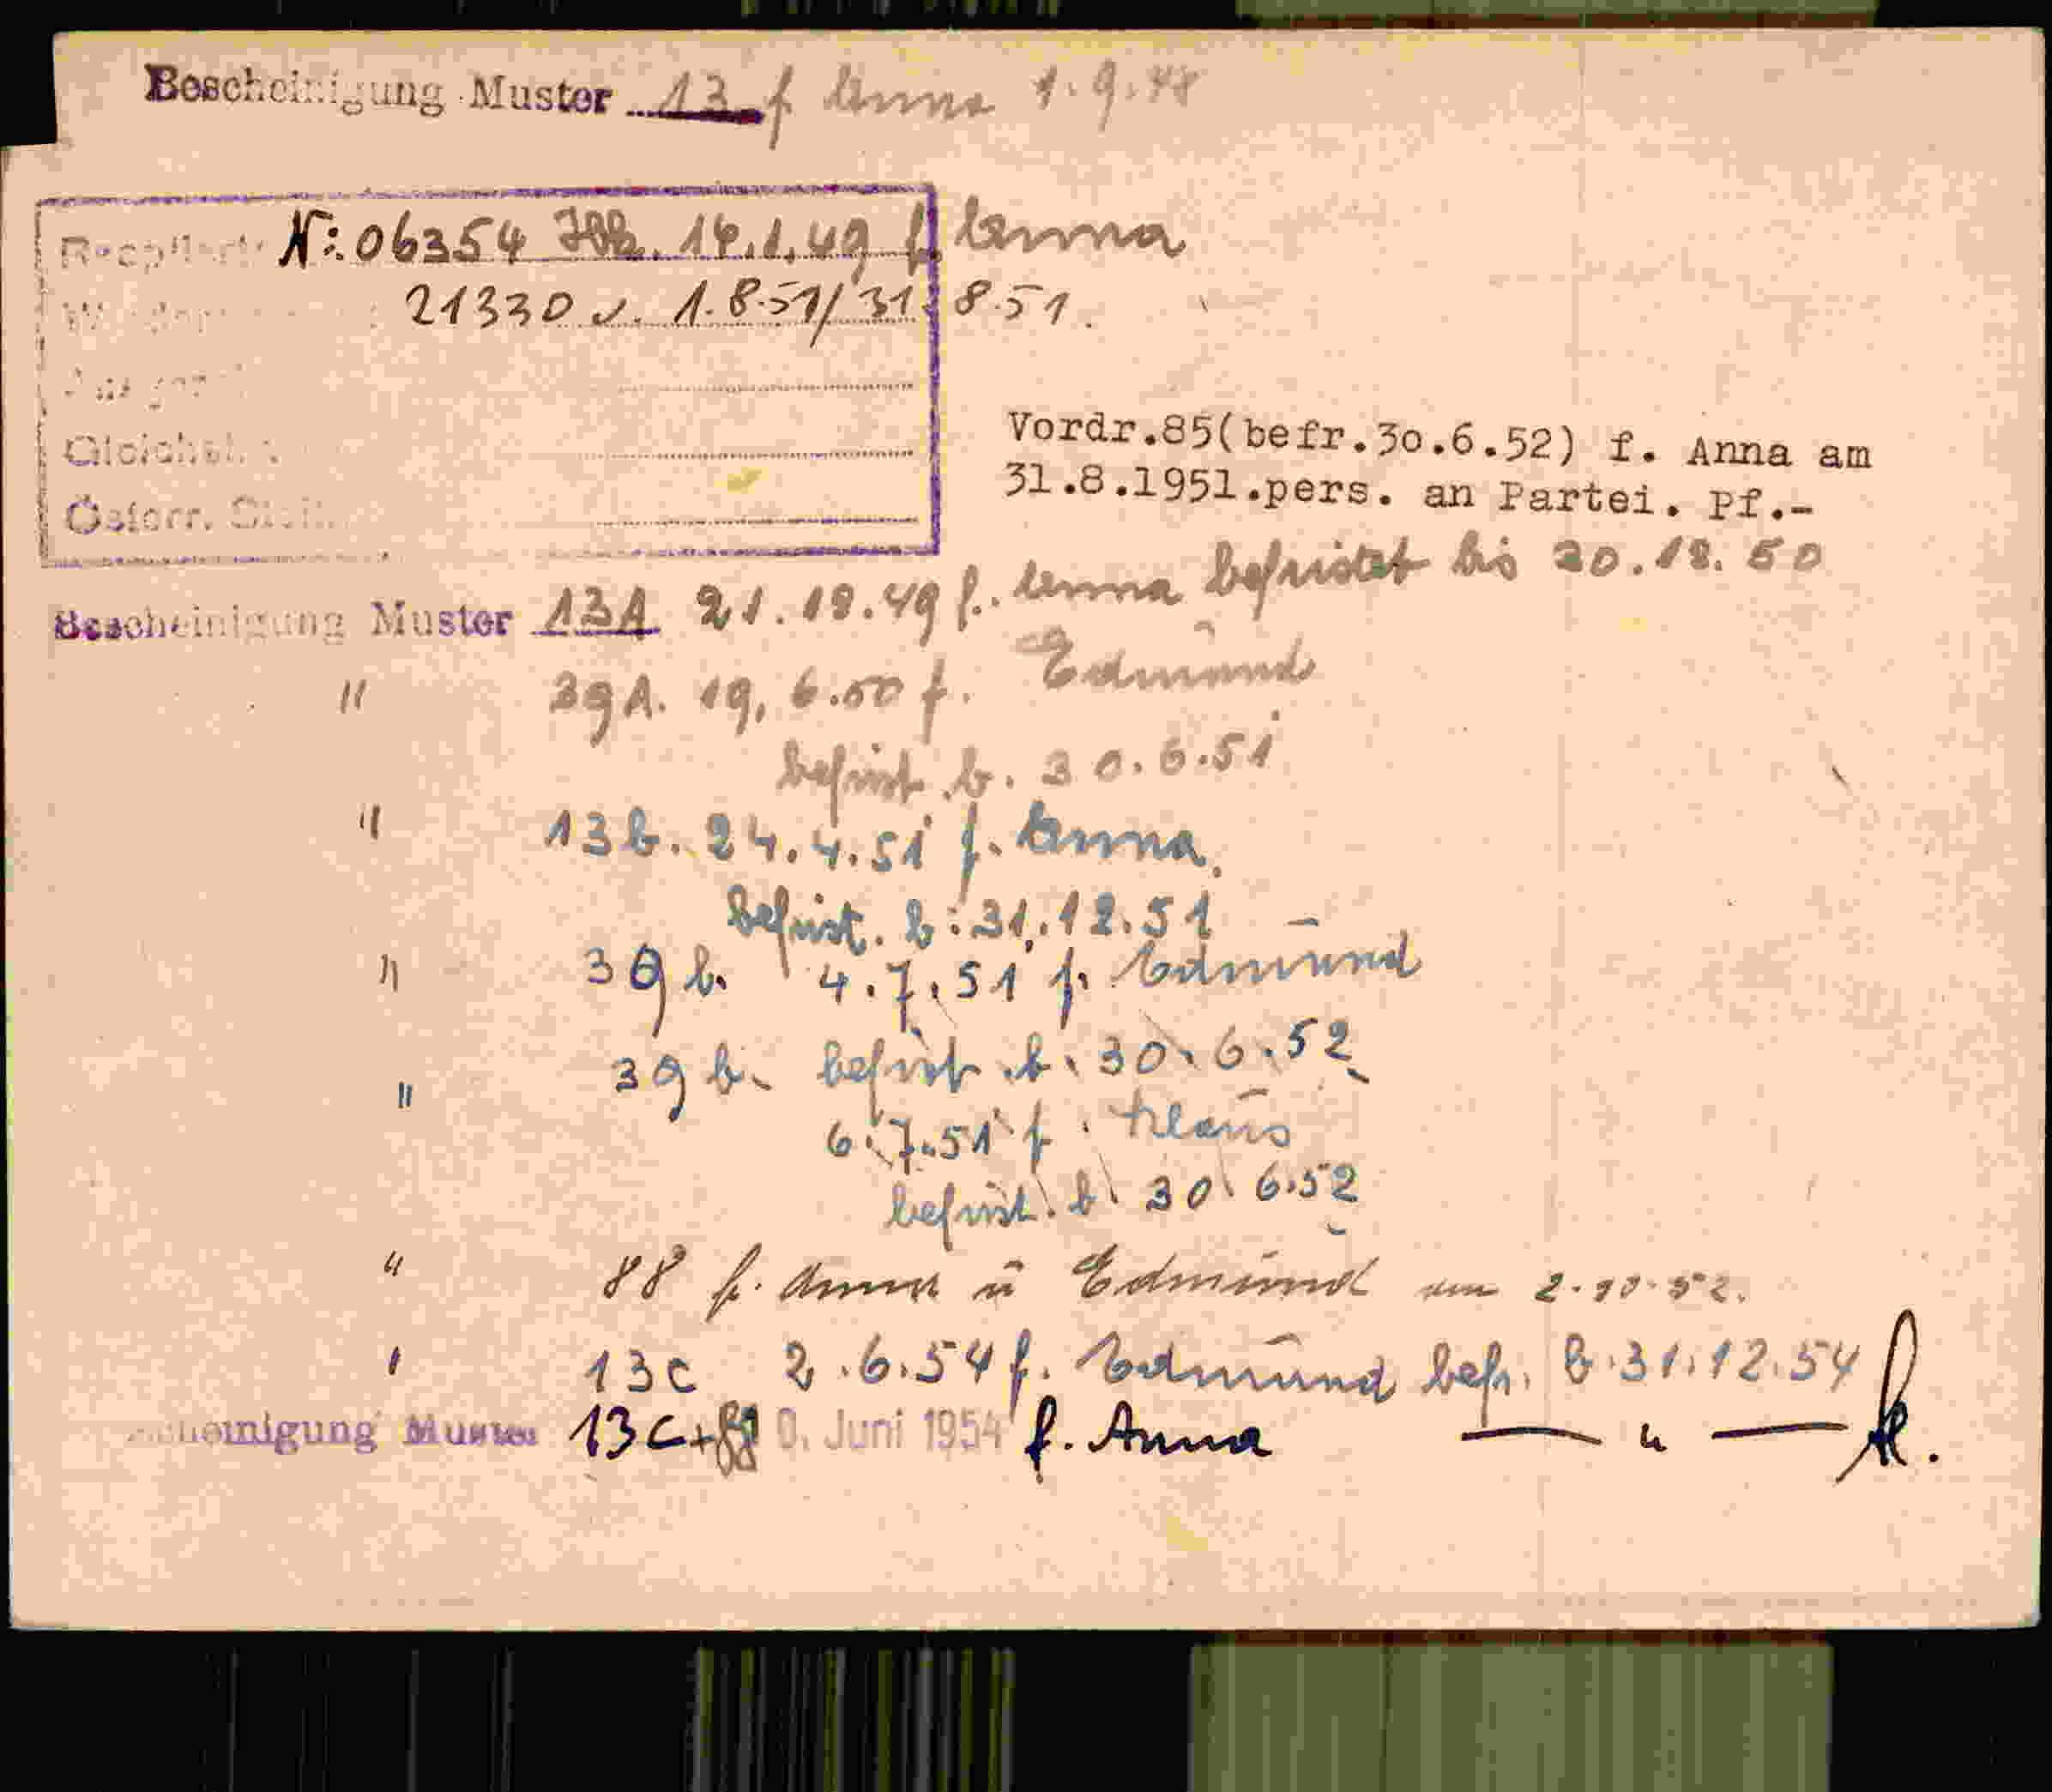 Bescheinigung Muster 13 f Anna 1.9.48
N: 06354 14.1.49 f. Anna
21330 v. 1.8.51/31.8.51.
Vordr.85(befr.30.6.52) f. Anna am
31.8.1951.pers. an Partei. Pf.-
Bescheinigung Muster 13A 21.12.49 f. Anna befristet bis 20.12.50
" 39A. 19.6.50 f. Edmund
befrist. b. 30.6.51
" 13b. 24.4.51 f. Anna
befrist. b. 31.12.51
" 39b. 4.7.51 f. Edmund
39b. befrist. b. 30.6.52
"
6.7.51 f. Klaus
befrist. b. 30.6.52
" 88 f. Anna u Edmund am 2.10.52.
" 13c 2.6.54 f. Edmund befr. b. 31.12.54
Muster 13c+ 0. Juni 1954 f. Anna — " —